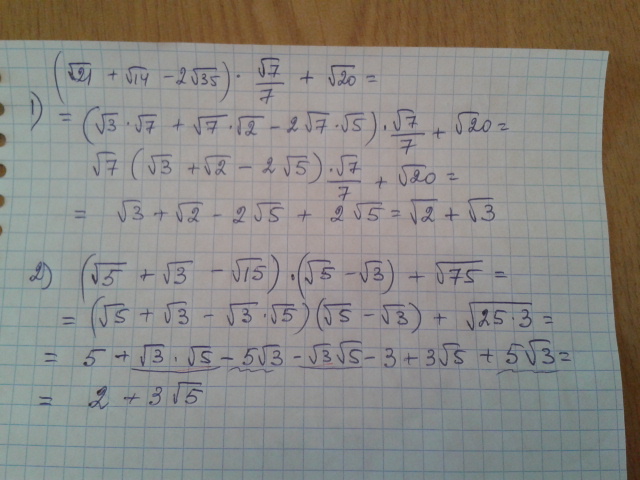 (√21 + √14 − 2√35) · √7/7 + √20 =
1) = (√3 · √7 + √7 · √2 − 2√7 · √5) · √7/7 + √20 =
√7 (√3 + √2 − 2√5) · √7/7 + √20 =
= √3 + √2 − 2√5 + 2√5 = √2 + √3
2) (√5 + √3 − √15) · (√5 − √3) + √75 =
= (√5 + √3 − √3 · √5) (√5 − √3) + √25 · 3 =
= 5 + √3 · √5 − 5√3 − √3 √5 − 3 + 3√5 + 5√3 =
= 2 + 3√5